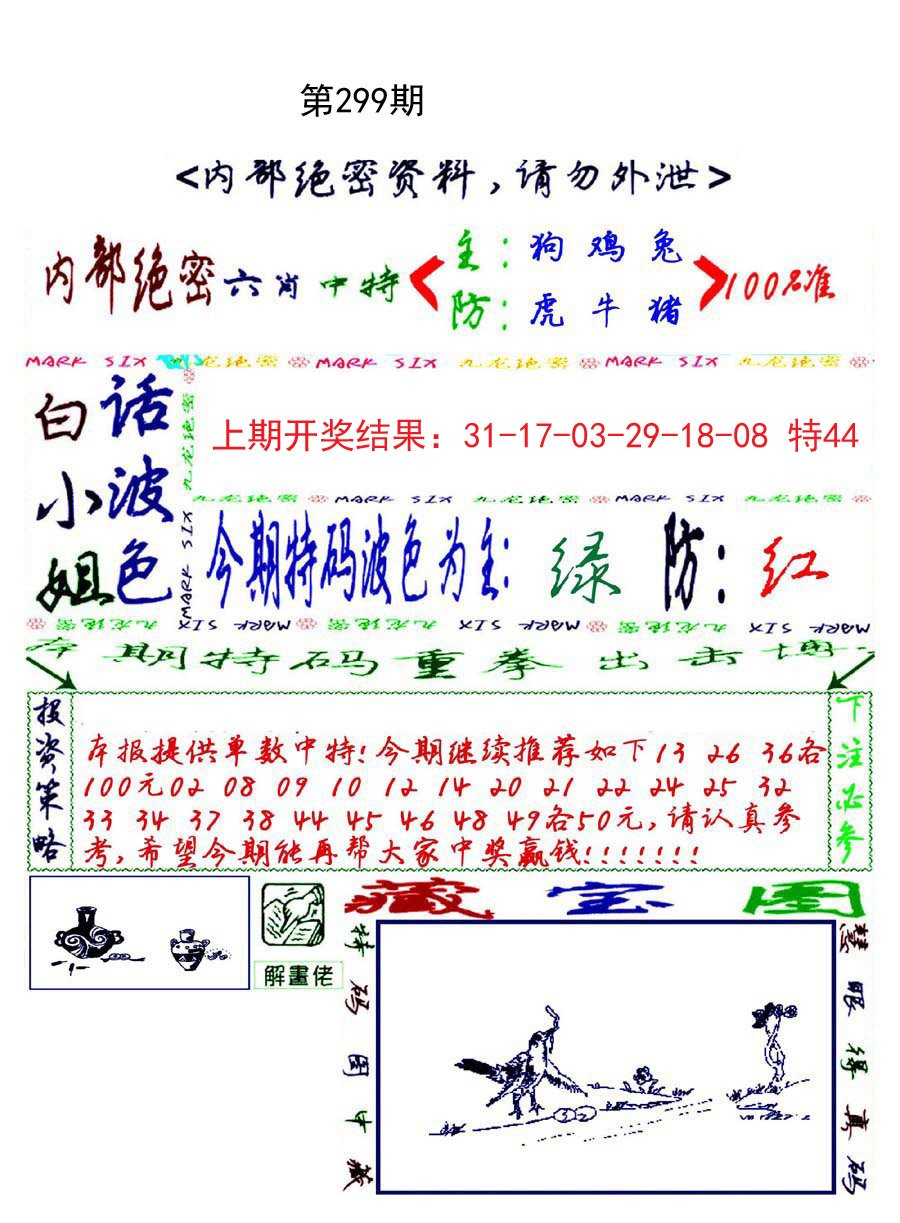 第299期
<内部绝密资料,请勿外泄>
内部绝密六肖中特
主:狗鸡兔
防:虎牛猪
100%准
MARK SIX 九龙绝密 MARK SIX 九龙绝密 MARK SIX 九龙绝密
白话
小波
姐色
九龙绝密
MARK SIX
上期开奖结果：31-17-03-29-18-08 特44
九龙绝密 MARK SIX 九龙绝密 MARK SIX 九龙绝密
今期特码波色为主:绿 防:红
九龙绝密 MARK SIX 九龙绝密 MARK SIX 九龙绝密 MARK SIX
本期特码重拳出击博
投资策略
本报提供单数中特!今期继续推荐如下13 26 36各
100元02 08 09 10 12 14 20 21 22 24 25 32
33 34 37 38 44 45 46 48 49各50元,请认真参
考,希望今期能再帮大家中奖赢钱!!!!!!!
下注必参
解畫佬
藏宝图
特码图中藏
慧眼得真码